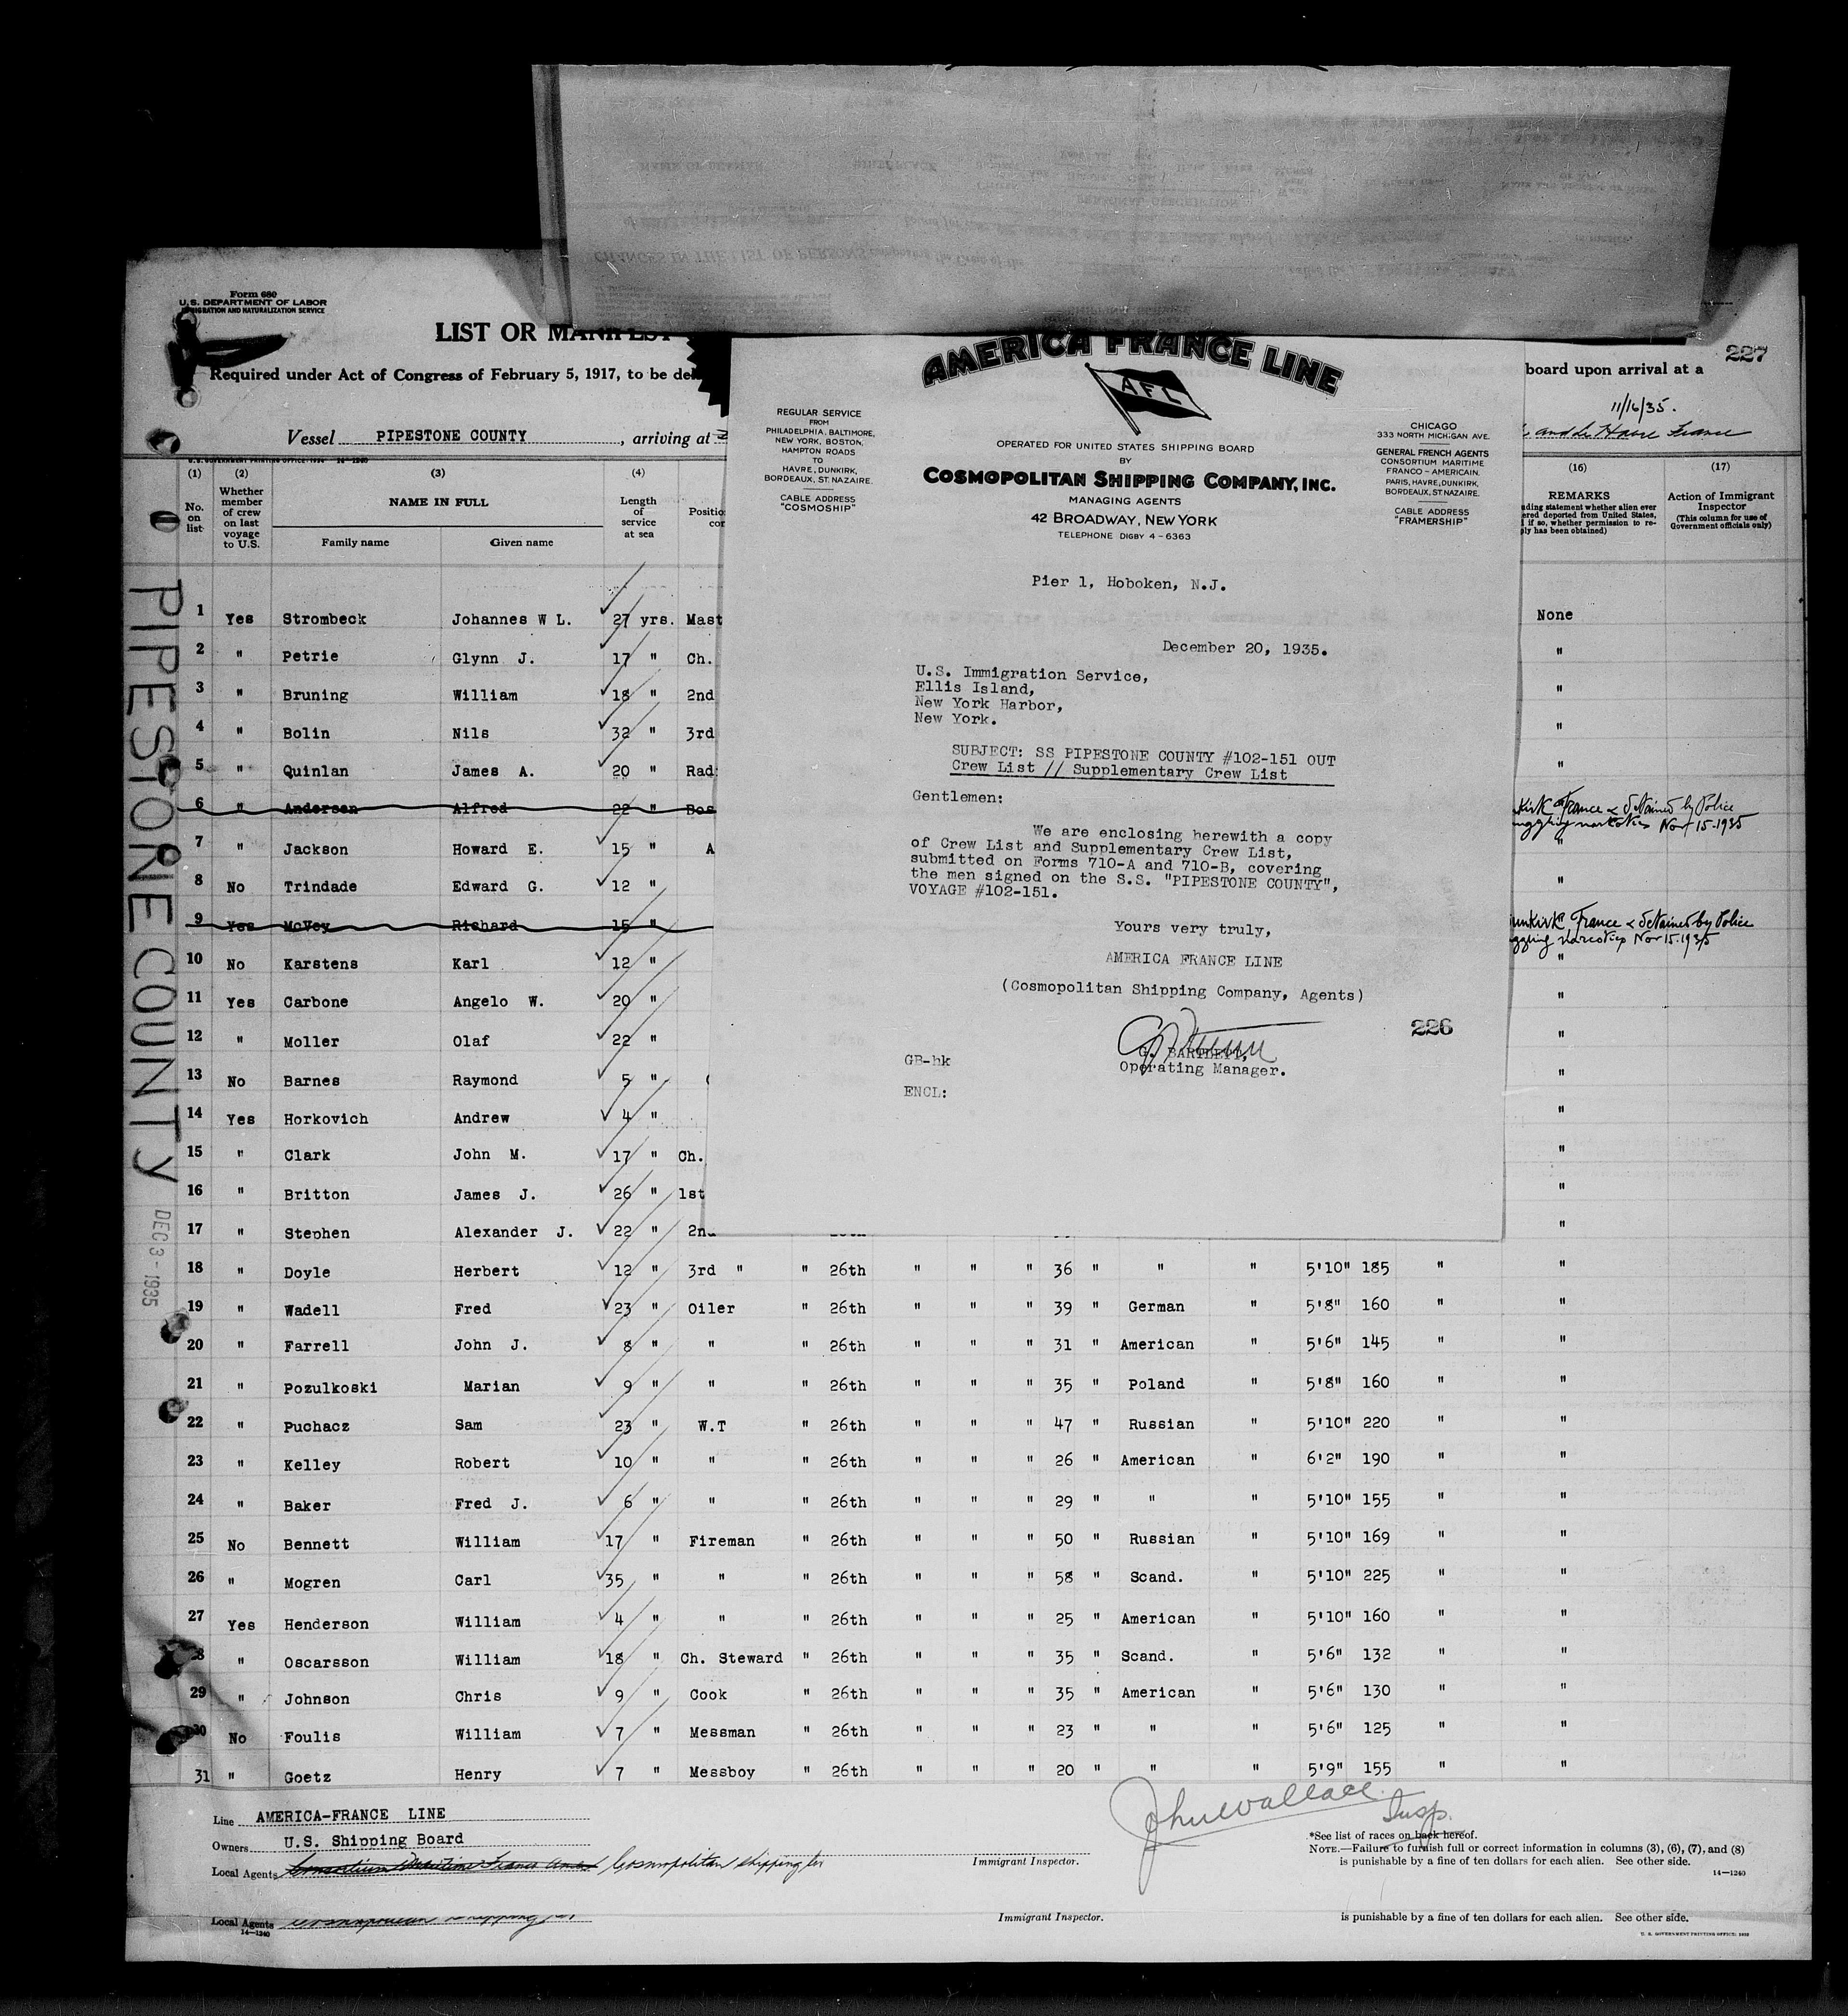 Form 680
U.S. DEPARTMENT OF LABOR
IMMIGRATION AND NATURALIZATION SERVICE
LIST OR MANIFEST
Required under Act of Congress of February 5, 1917, to be
board upon arrival at a
227
11/16/35.
Vessel PIPESTONE COUNTY, arriving at
and Le Havre France
PIPESTONE COUNTY
DEC 3 - 1935
AMERICA FRANCE LINE
AFL
REGULAR SERVICE
FROM
PHILADELPHIA, BALTIMORE,
NEW YORK, BOSTON,
HAMPTON ROADS
TO
HAVRE, DUNKIRK,
BORDEAUX, ST. NAZAIRE.
CABLE ADDRESS
"COSMOSHIP"
OPERATED FOR UNITED STATES SHIPPING BOARD
BY
COSMOPOLITAN SHIPPING COMPANY, INC.
MANAGING AGENTS
42 BROADWAY, NEW YORK
TELEPHONE DIGBY 4-6363
CHICAGO
333 NORTH MICHIGAN AVE.
GENERAL FRENCH AGENTS
CONSORTIUM MARITIME
FRANCO-AMERICAIN.
PARIS, HAVRE, DUNKIRK,
BORDEAUX, ST. NAZAIRE.
CABLE ADDRESS
"FRAMERSHIP"
Pier 1, Hoboken, N.J.
December 20, 1935.
U.S. Immigration Service,
Ellis Island,
New York Harbor,
New York.
SUBJECT: SS PIPESTONE COUNTY #102-151 OUT
Crew List // Supplementary Crew List
Gentlemen:
We are enclosing herewith a copy
of Crew List and Supplementary Crew List,
submitted on Forms 710-A and 710-B, covering
the men signed on the S.S. "PIPESTONE COUNTY",
VOYAGE #102-151.
Yours very truly,
AMERICA FRANCE LINE
(Cosmopolitan Shipping Company, Agents)
226
G. BARTLETT,
Operating Manager.
GB-hk
ENCL:
(1) (2) (3) (4) (16) (17)
No. on list
Whether member of crew on last voyage to U.S.
NAME IN FULL
Family name Given name
Length of service at sea
REMARKS
Action of Immigrant Inspector
(This column for use of Government officials only)
1 Yes Strombeck Johannes W L. 27 yrs. Mast None
2 " Petrie Glynn J. 17 " Ch. "
3 " Bruning William 18 " 2nd "
4 " Bolin Nils 32 " 3rd "
5 " Quinlan James A. 20 " Rad "
6 " Andersen Alfred 22 " Bos kirk France & detained by Police
narcotics Nov 15-1935
7 " Jackson Howard E. 15 " A "
8 No Trindade Edward G. 12 " "
9 Yes McVey Richard 15 " France & detained by Police
narcotics Nov 15-1935
10 No Karstens Karl 12 " "
11 Yes Carbone Angelo W. 20 " "
12 " Moller Olaf 22 " "
13 No Barnes Raymond 5 " "
14 Yes Horkovich Andrew 4 " "
15 " Clark John M. 17 " Ch. "
16 " Britton James J. 26 " 1st "
17 " Stephen Alexander J. 22 " 2nd "
18 " Doyle Herbert 12 " 3rd " " 26th " " " 36 " " " 5'10" 185 " "
19 " Wadell Fred 23 " Oiler " 26th " " " 39 " German " 5'8" 160 " "
20 " Farrell John J. 8 " " " 26th " " " 31 " American " 5'6" 145 " "
21 " Pozulkoski Marian 9 " " " 26th " " " 35 " Poland " 5'8" 160 " "
22 " Puchacz Sam 23 " W.T " 26th " " " 47 " Russian " 5'10" 220 " "
23 " Kelley Robert 10 " " " 26th " " " 26 " American " 6'2" 190 " "
24 " Baker Fred J. 6 " " " 26th " " " 29 " " " 5'10" 155 " "
25 No Bennett William 17 " Fireman " 26th " " " 50 " Russian " 5'10" 169 " "
26 " Mogren Carl 35 " " " 26th " " " 58 " Scand. " 5'10" 225 " "
27 Yes Henderson William 4 " " " 26th " " " 25 " American " 5'10" 160 " "
28 " Oscarsson William 18 " Ch. Steward " 26th " " " 35 " Scand. " 5'6" 132 " "
29 " Johnson Chris 9 " Cook " 26th " " " 35 " American " 5'6" 130 " "
30 No Foulis William 7 " Messman " 26th " " " 23 " " " 5'6" 125 " "
31 " Goetz Henry 7 " Messboy " 26th " " " 20 " " " 5'9" 155 " "
Line AMERICA-FRANCE LINE
Owners U.S. Shipping Board
Local Agents Cosmopolitan shipping
John Wallace Insp.
Immigrant Inspector.
*See list of races on back hereof.
NOTE.—Failure to furnish full or correct information in columns (3), (6), (7), and (8)
is punishable by a fine of ten dollars for each alien. See other side.
14—1240
Local Agents
14—1240
Immigrant Inspector.
is punishable by a fine of ten dollars for each alien. See other side.
U. S. GOVERNMENT PRINTING OFFICE: